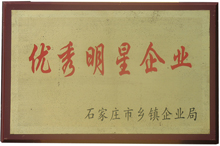 优秀明星企业
石家庄市乡镇企业局